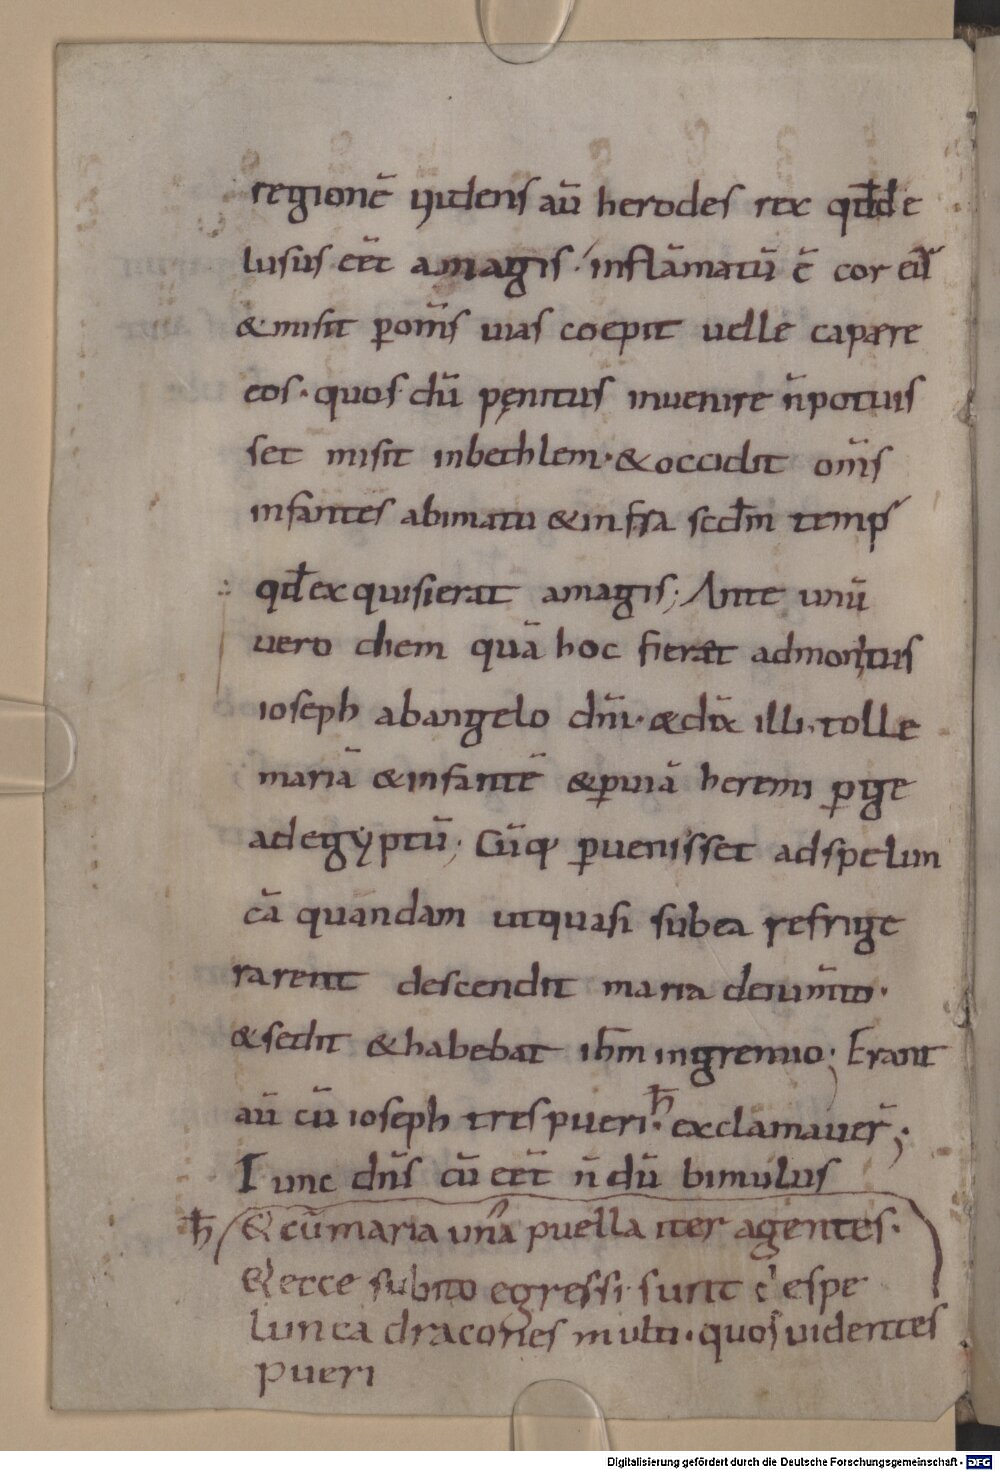 regionē yidens aū herodes rex qđde
lusus eēt amagis · inflāmatū ē cor eiꝰ
& misit ꝑom̄s uias coepit uelle capere
eos · quos dū pęnitus inuenire n̄ potuis
set misit inbethlem · & occidit om̄s
infantes abimatu & infra secđm temp̄
qđ exquisierat amagis ; Ante unū
uero diem quā hoc fierat admonitus
ioseph abangelo dn̄i · & dix̄ illi · tolle
mariā & infantē & ꝑuiā heremi ꝑge
ad egyptū ; Cūq ꝑuenisset adspelun
cā quandam utquasi subea refrige
rarent descendit maria deium̄to ·
& sedit & habebat ihm̄ ingremio ; Erant
aū cū ioseph tres pueri · ħ exclamauer̄ ;
Tunc dn̄s cū eēt n̄dū bimulus
ħ & cū maria una puella iter agentes ·
& ecce subito egressi sunt de spe
lunca dracones multi · quos uidentes
pueri
Digitalisierung gefördert durch die Deutsche Forschungsgemeinschaft - DFG